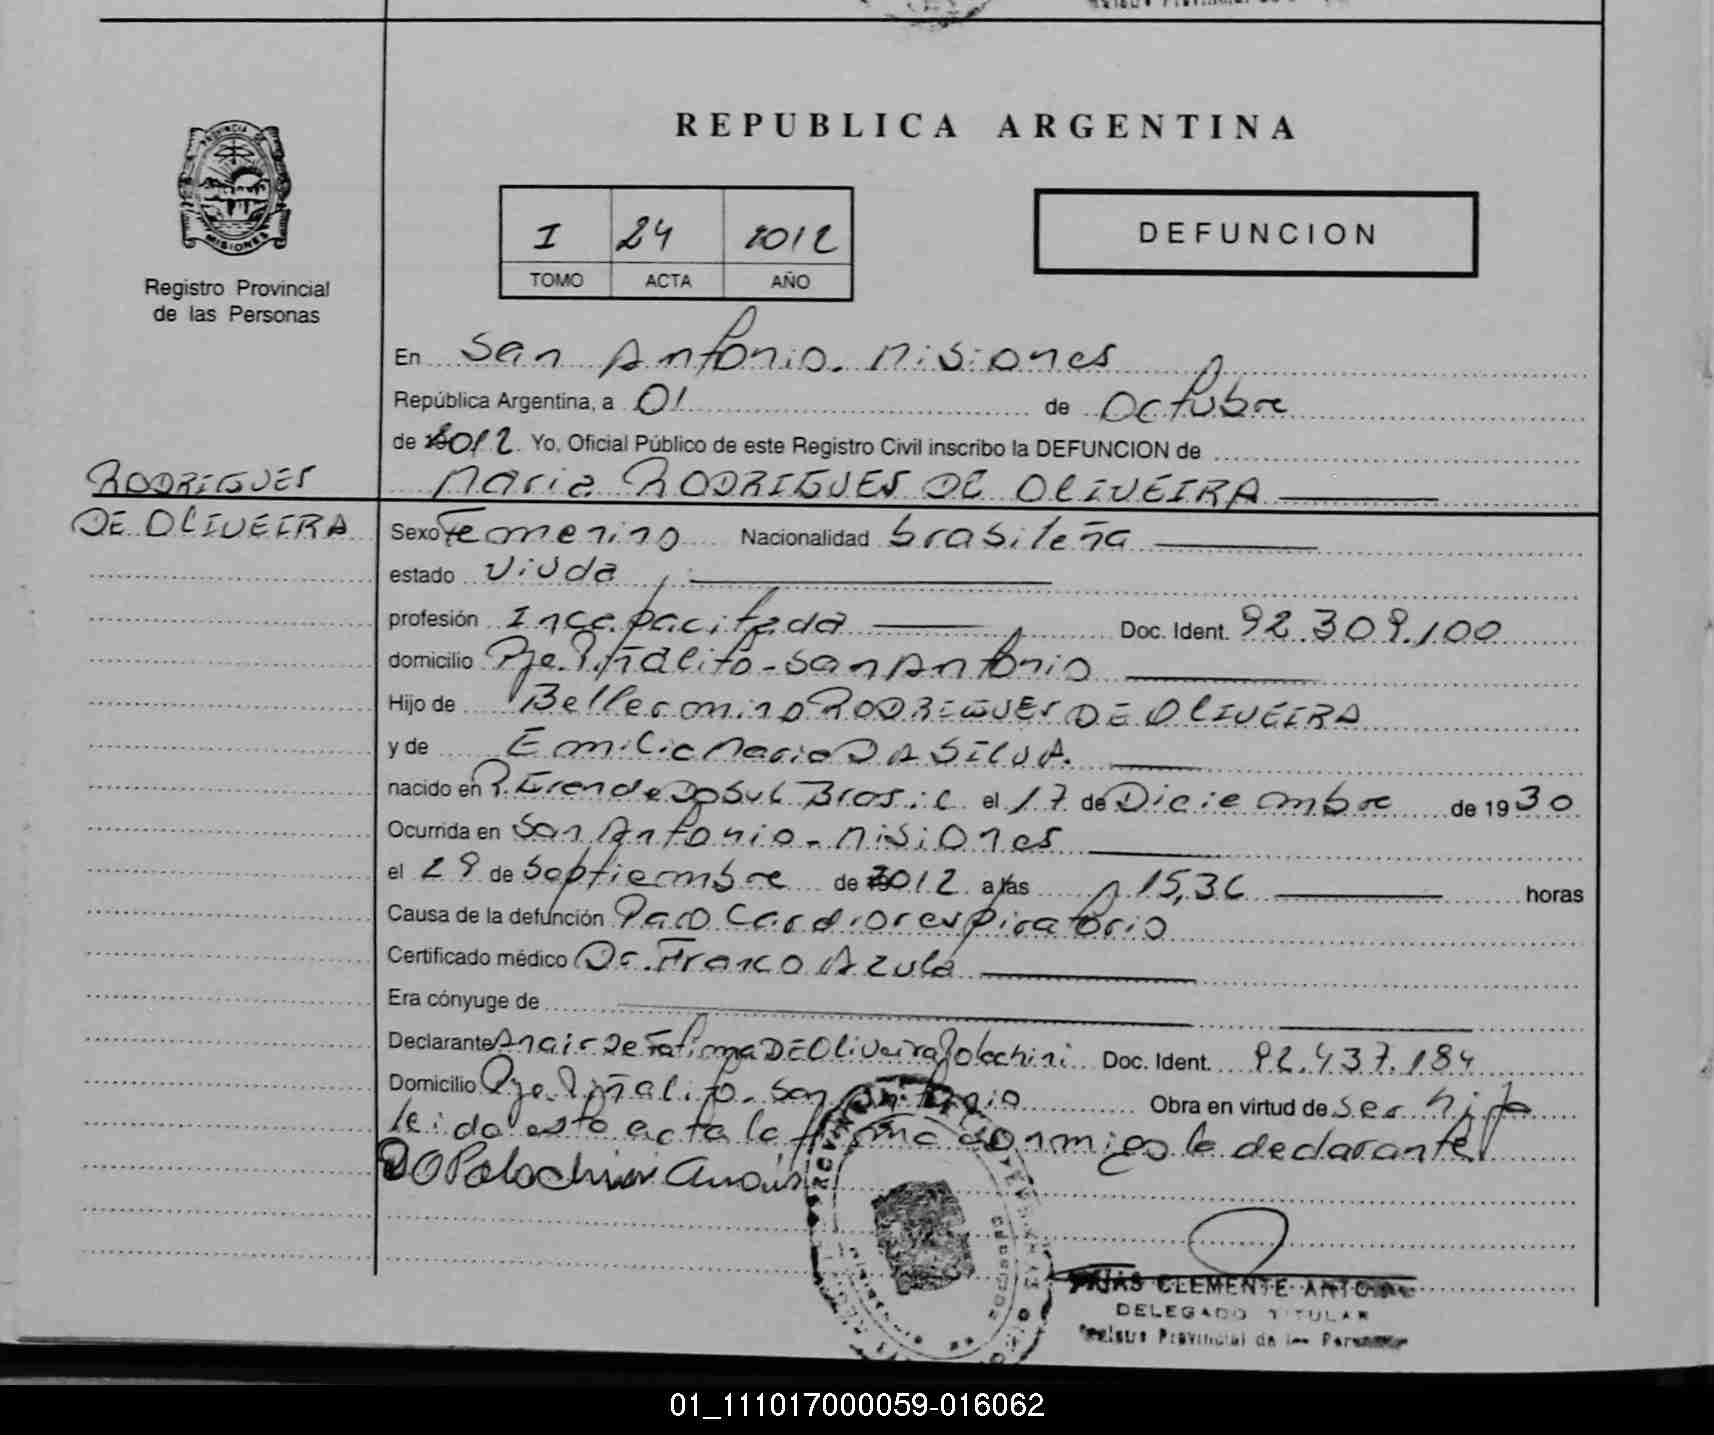 REPUBLICA ARGENTINA
PROVINCIA DE
MISIONES
Registro Provincial
de las Personas
I 24 2012
TOMO ACTA AÑO
DEFUNCION
En San Antonio. Misiones
República Argentina, a 01 de Octubre
de 2012. Yo, Oficial Público de este Registro Civil inscribo la DEFUNCION de
Maria RODRIGUES DE OLIVEIRA
RODRIGUES
DE OLIVEIRA
Sexo Femenino Nacionalidad brasileña
estado Viuda
profesión Incapacitada Doc. Ident. 92.309.100
domicilio Pje. Piñalito - San Antonio
Hijo de Bellermino RODRIGUES DE OLIVEIRA
y de Emilia Maria DA SILVA.
nacido en R. Grande Do Sul Brasil el 17 de Diciembre de 1930
Ocurrida en San Antonio - Misiones
el 29 de Septiembre de 2012 a las 15,36 horas
Causa de la defunción Paro Cardiorespiratorio
Certificado médico Dr. Franco Azula
Era cónyuge de
Declarante Anair De Fatima DE Oliveira Polachini Doc. Ident. 92.437.184
Domicilio Pje. Piñalito. San Antonio Obra en virtud de ser hija
leida esta acta la firma conmigo la declarante
DO Polachini Anair
CLEMENTE ANTONIO
DELEGADO TITULAR
Registro Provincial de las Personas
01_111017000059-016062